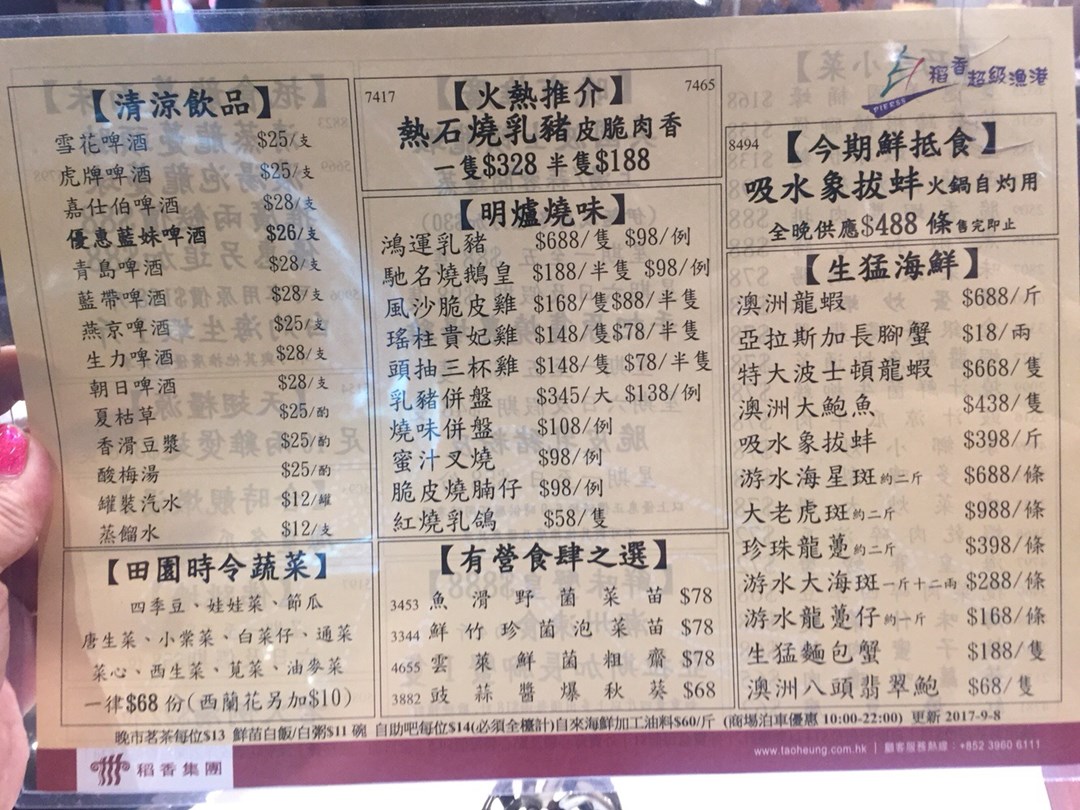 【清涼飲品】
雪花啤酒 $25/支
虎牌啤酒 $25/支
嘉仕伯啤酒 $28/支
優惠藍妹啤酒 $26/支
青島啤酒 $28/支
藍帶啤酒 $28/支
燕京啤酒 $25/支
生力啤酒 $28/支
朝日啤酒 $28/支
夏枯草 $25/酌
香滑豆漿 $25/酌
酸梅湯 $25/酌
罐裝汽水 $12/罐
蒸餾水 $12/支
【田園時令蔬菜】
四季豆、娃娃菜、節瓜
唐生菜、小棠菜、白菜仔、通菜
菜心、西生菜、莧菜、油麥菜
一律$68 份(西蘭花另加$10)
7417 【火熱推介】 7465
熱石燒乳豬皮脆肉香
一隻$328 半隻$188
【明爐燒味】
鴻運乳豬 $688/隻 $98/例
馳名燒鵝皇 $188/半隻 $98/例
風沙脆皮雞 $168/隻$88/半隻
瑤柱貴妃雞 $148/隻$78/半隻
頭抽三杯雞 $148/隻 $78/半隻
乳豬併盤 $345/大 $138/例
燒味併盤 $108/例
蜜汁叉燒 $98/例
脆皮燒腩仔 $98/例
紅燒乳鴿 $58/隻
【有營食肆之選】
3453 魚滑野菌菜苗 $78
3344 鮮竹珍菌泡菜苗 $78
4655 雲萊鮮菌粗齋 $78
3882 豉蒜醬爆秋葵 $68
稻香超級漁港
PIER88
8494 【今期鮮抵食】
吸水象拔蚌火鍋自灼用
全晚供應$488 條售完即止
【生猛海鮮】
澳洲龍蝦 $688/斤
亞拉斯加長腳蟹 $18/兩
特大波士頓龍蝦 $668/隻
澳洲大鮑魚 $438/隻
吸水象拔蚌 $398/斤
游水海星斑約二斤 $688/條
大老虎斑約二斤 $988/條
珍珠龍躉約二斤 $398/條
游水大海斑一斤十二兩 $288/條
游水龍躉仔約一斤 $168/條
生猛麵包蟹 $188/隻
澳洲八頭翡翠鮑 $68/隻
晚市茗茶每位$13 鮮苗白飯/白粥$11 碗 自助吧每位$14(必須全檯計)自來海鮮加工油料$60/斤 (商場泊車優惠 10:00-22:00) 更新 2017-9-8
稻香集團
www.taoheung.com.hk | 顧客服務熱線：+852 3960 6111